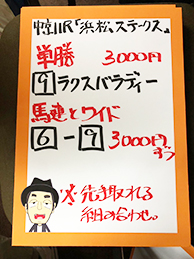 中京11R「浜松ステークス」
単勝 3000円
9 ラクスバラディー
馬連とワイド
6-9 3000円
ずつ
※先着取れる
組み合わせ。